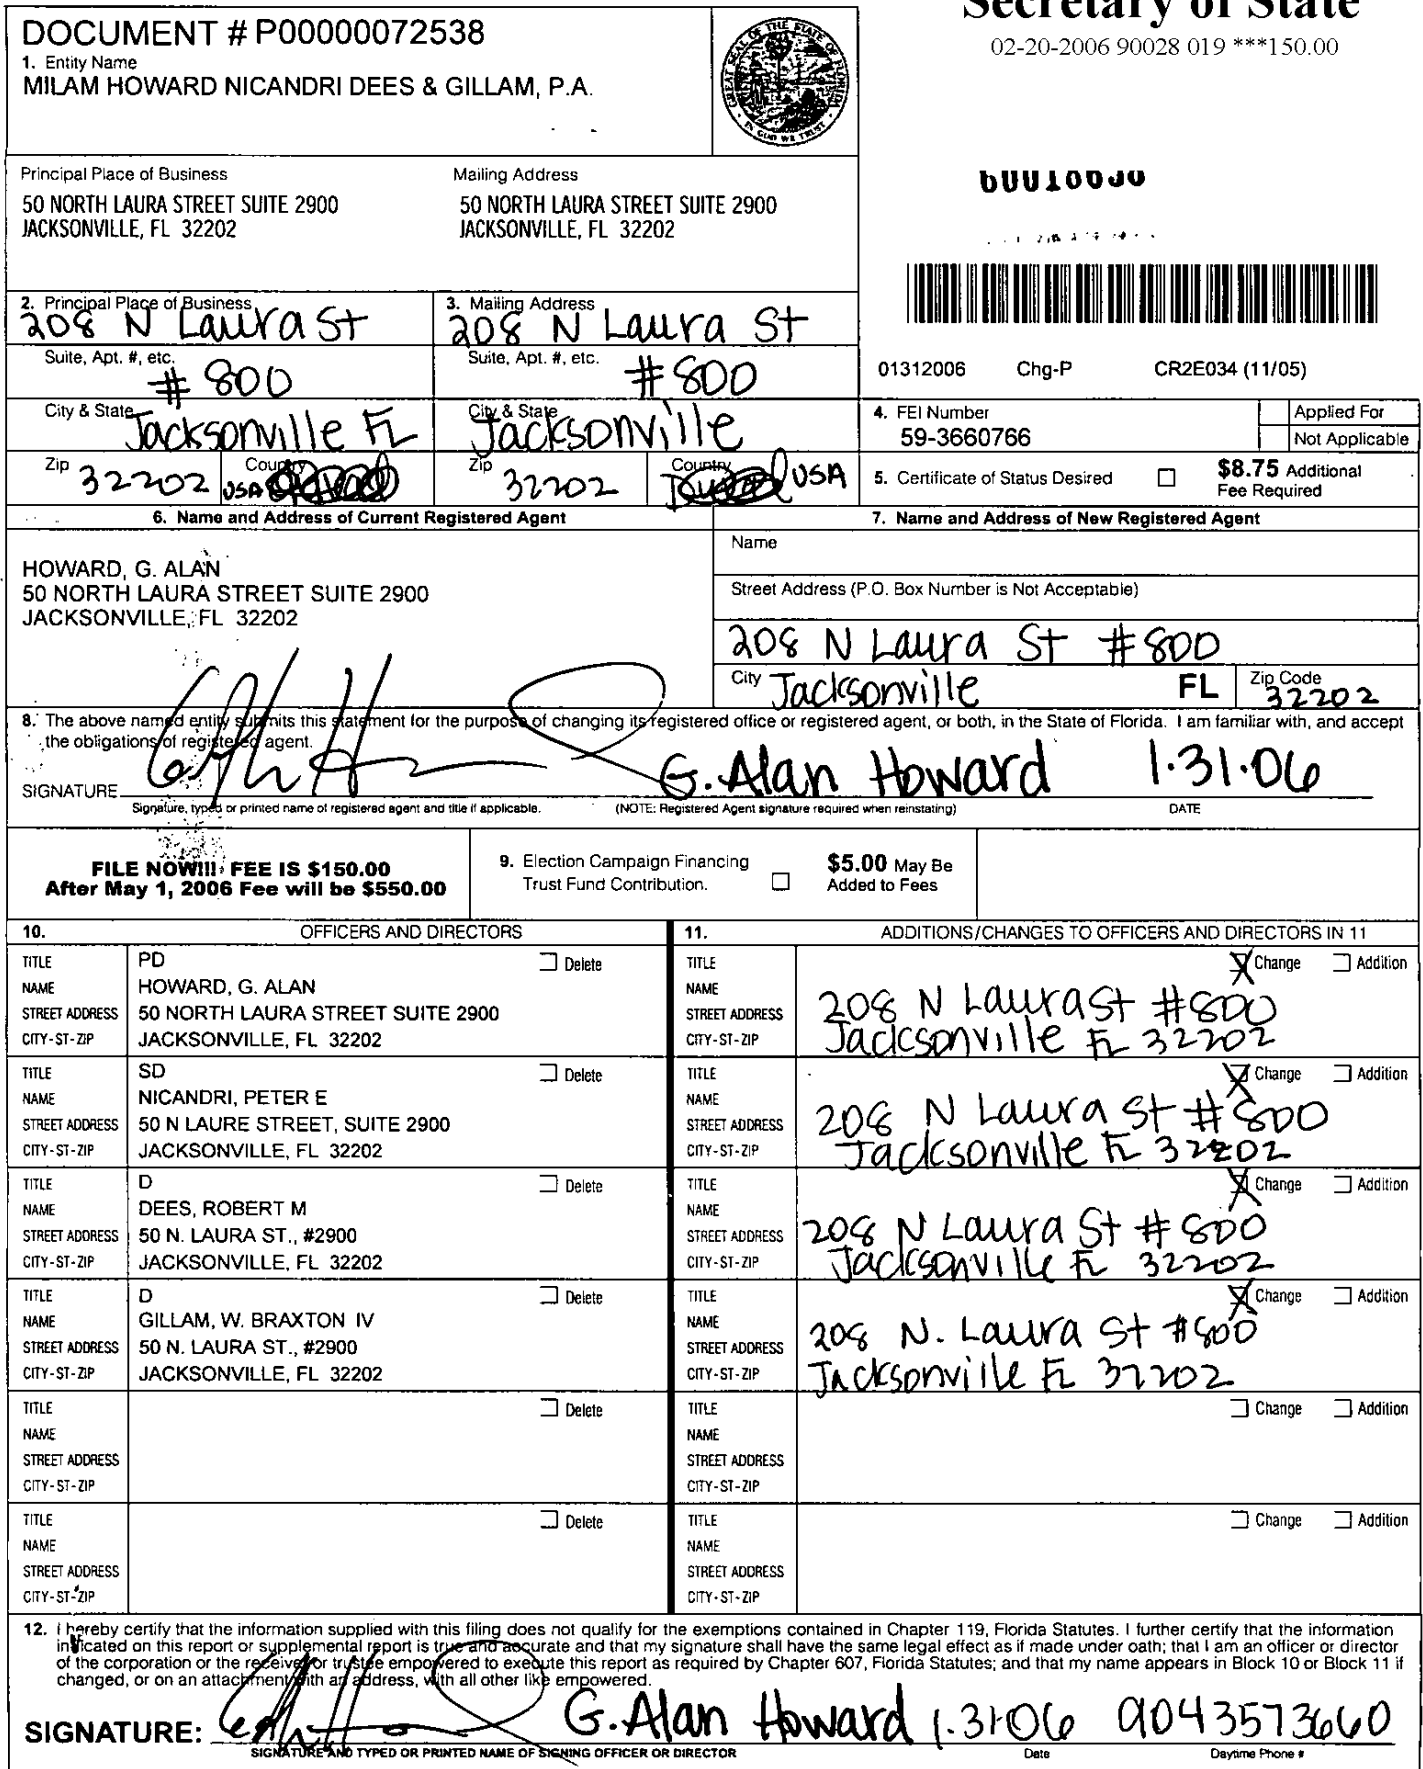 Secretary of State
02-20-2006 90028 019 ***150.00
DOCUMENT # P00000072538
1. Entity Name
MILAM HOWARD NICANDRI DEES & GILLAM, P.A.
GREAT SEAL OF THE STATE OF FLORIDA
IN GOD WE TRUST
Principal Place of Business
50 NORTH LAURA STREET SUITE 2900
JACKSONVILLE, FL 32202
Mailing Address
50 NORTH LAURA STREET SUITE 2900
JACKSONVILLE, FL 32202
2. Principal Place of Business
208 N Laura St
Suite, Apt. #, etc.
# 800
City & State
Jacksonville FL
Zip
32202
Country
USA
3. Mailing Address
208 N Laura St
Suite, Apt. #, etc.
#800
City & State
Jacksonville
Zip
32202
Country
USA
01312006 Chg-P CR2E034 (11/05)
4. FEI Number
59-3660766
Applied For
Not Applicable
5. Certificate of Status Desired
$8.75 Additional
Fee Required
6. Name and Address of Current Registered Agent
HOWARD, G. ALAN
50 NORTH LAURA STREET SUITE 2900
JACKSONVILLE, FL 32202
7. Name and Address of New Registered Agent
Name
Street Address (P.O. Box Number is Not Acceptable)
208 N Laura St #800
City Jacksonville FL Zip Code 32202
8. The above named entity submits this statement for the purpose of changing its registered office or registered agent, or both, in the State of Florida. I am familiar with, and accept
the obligations of registered agent.
SIGNATURE G. Alan Howard 1.31.06
Signature, typed or printed name of registered agent and title if applicable. (NOTE: Registered Agent signature required when reinstating) DATE
FILE NOW!!! FEE IS $150.00
After May 1, 2006 Fee will be $550.00
9. Election Campaign Financing
Trust Fund Contribution.
$5.00 May Be
Added to Fees
10. OFFICERS AND DIRECTORS
11. ADDITIONS/CHANGES TO OFFICERS AND DIRECTORS IN 11
TITLE PD Delete
NAME HOWARD, G. ALAN
STREET ADDRESS 50 NORTH LAURA STREET SUITE 2900
CITY-ST-ZIP JACKSONVILLE, FL 32202
TITLE Change Addition
NAME
STREET ADDRESS 208 N Laura St #800
CITY-ST-ZIP Jacksonville FL 32202
TITLE SD Delete
NAME NICANDRI, PETER E
STREET ADDRESS 50 N LAURE STREET, SUITE 2900
CITY-ST-ZIP JACKSONVILLE, FL 32202
TITLE Change Addition
NAME
STREET ADDRESS 208 N Laura St #800
CITY-ST-ZIP Jacksonville FL 32202
TITLE D Delete
NAME DEES, ROBERT M
STREET ADDRESS 50 N. LAURA ST., #2900
CITY-ST-ZIP JACKSONVILLE, FL 32202
TITLE Change Addition
NAME
STREET ADDRESS 208 N Laura St # 800
CITY-ST-ZIP Jacksonville FL 32202
TITLE D Delete
NAME GILLAM, W. BRAXTON IV
STREET ADDRESS 50 N. LAURA ST., #2900
CITY-ST-ZIP JACKSONVILLE, FL 32202
TITLE Change Addition
NAME
STREET ADDRESS 208 N. Laura St #800
CITY-ST-ZIP Jacksonville FL 32202
TITLE Delete
NAME
STREET ADDRESS
CITY-ST-ZIP
TITLE Change Addition
NAME
STREET ADDRESS
CITY-ST-ZIP
TITLE Delete
NAME
STREET ADDRESS
CITY-ST-ZIP
TITLE Change Addition
NAME
STREET ADDRESS
CITY-ST-ZIP
12. I hereby certify that the information supplied with this filing does not qualify for the exemptions contained in Chapter 119, Florida Statutes. I further certify that the information
indicated on this report or supplemental report is true and accurate and that my signature shall have the same legal effect as if made under oath; that I am an officer or director
of the corporation or the receiver or trustee empowered to execute this report as required by Chapter 607, Florida Statutes; and that my name appears in Block 10 or Block 11 if
changed, or on an attachment with an address, with all other like empowered.
SIGNATURE: G. Alan Howard 1.31.06 9043573660
SIGNATURE AND TYPED OR PRINTED NAME OF SIGNING OFFICER OR DIRECTOR Date Daytime Phone #